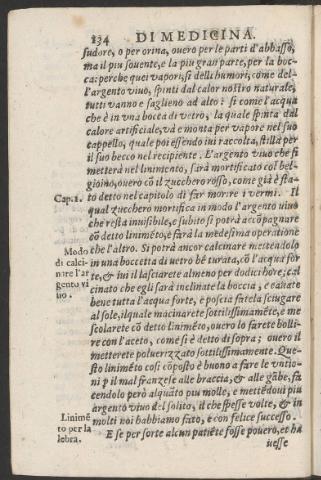 234 DI MEDICINA.
sudore, o per orina, ouero per le parti d'abbasso,
ma il piu souente, e la piu gran parte, per la boc-
ca: perche quei vapori, sì delli humori, come del-
l'argento viuo, spinti dal calor nostro naturale,
tutti vanno e saglieno ad alto: sì come l'acqua
che è in vna boccia di vetro, la quale spinta dal
calore artificiale, và e monta per vapore nel suo
cappello, quale poi essendo iui raccolta, stilla per
il suo becco nel recipiente. L'argento viuo che si
metterà nel linimento, sarà mortificato col bel-
gioino, ouero cō il zucchero rosso, come già è sta-
Cap.1. to detto nel capitolo di far morire i vermi. Il
qual zucchero mortifica in modo l'argento viuo
che resta inuisibile, e subito si potrà accōpagnare
cō detto linimēto, e farà la medesima operatione
Modo che l'altro. Si potrà ancor calcinare mettendolo
di calci- in una boccetta di uetro bē turata, cō l'acqua for
nare l'ar te, & iui il lasciarete almeno per dodici hore; cal
gento vi cinato che egli sarà inclinate la boccia, e cauate
uo. bene tutta l'acqua forte, e poscia fatela sciugare
al sole, ilquale macinarete sottilissimamēte, e me
scolarete cō detto linimēto, ouero lo farete bolli-
re con l'aceto, come si è detto di sopra; ouero il
metterete poluerizzato sottilissimamente. Que-
sto linimēto così cōposto è buono a fare le vntio-
ni p il mal franzese alle braccia, & alle gābe, fa
cendolo però alquāto piu molle, e mettēdoui piu
argento viuo del solito, il che spesse volte, & in
Linimē molti noi habbiamo fatto, e con felice successo.
to per la E se per sorte alcun patiēte fosse pouero, et ha
lebra. uesse